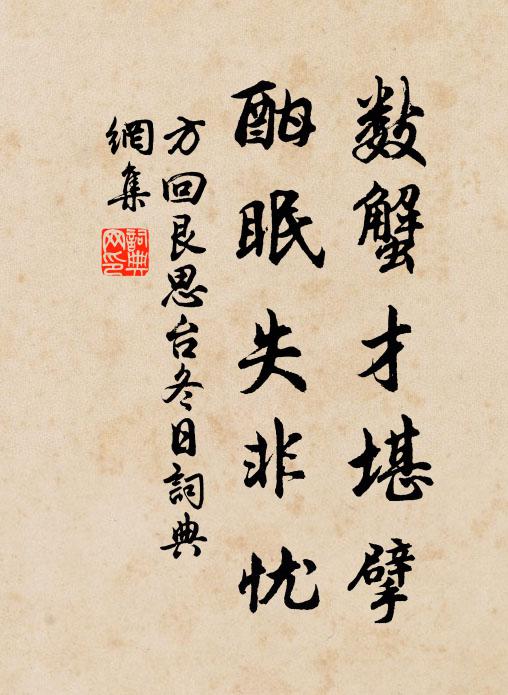 数蟹才堪擘
酣眠失非忧
方回艮思台冬日詞典
網集
詞典
网印